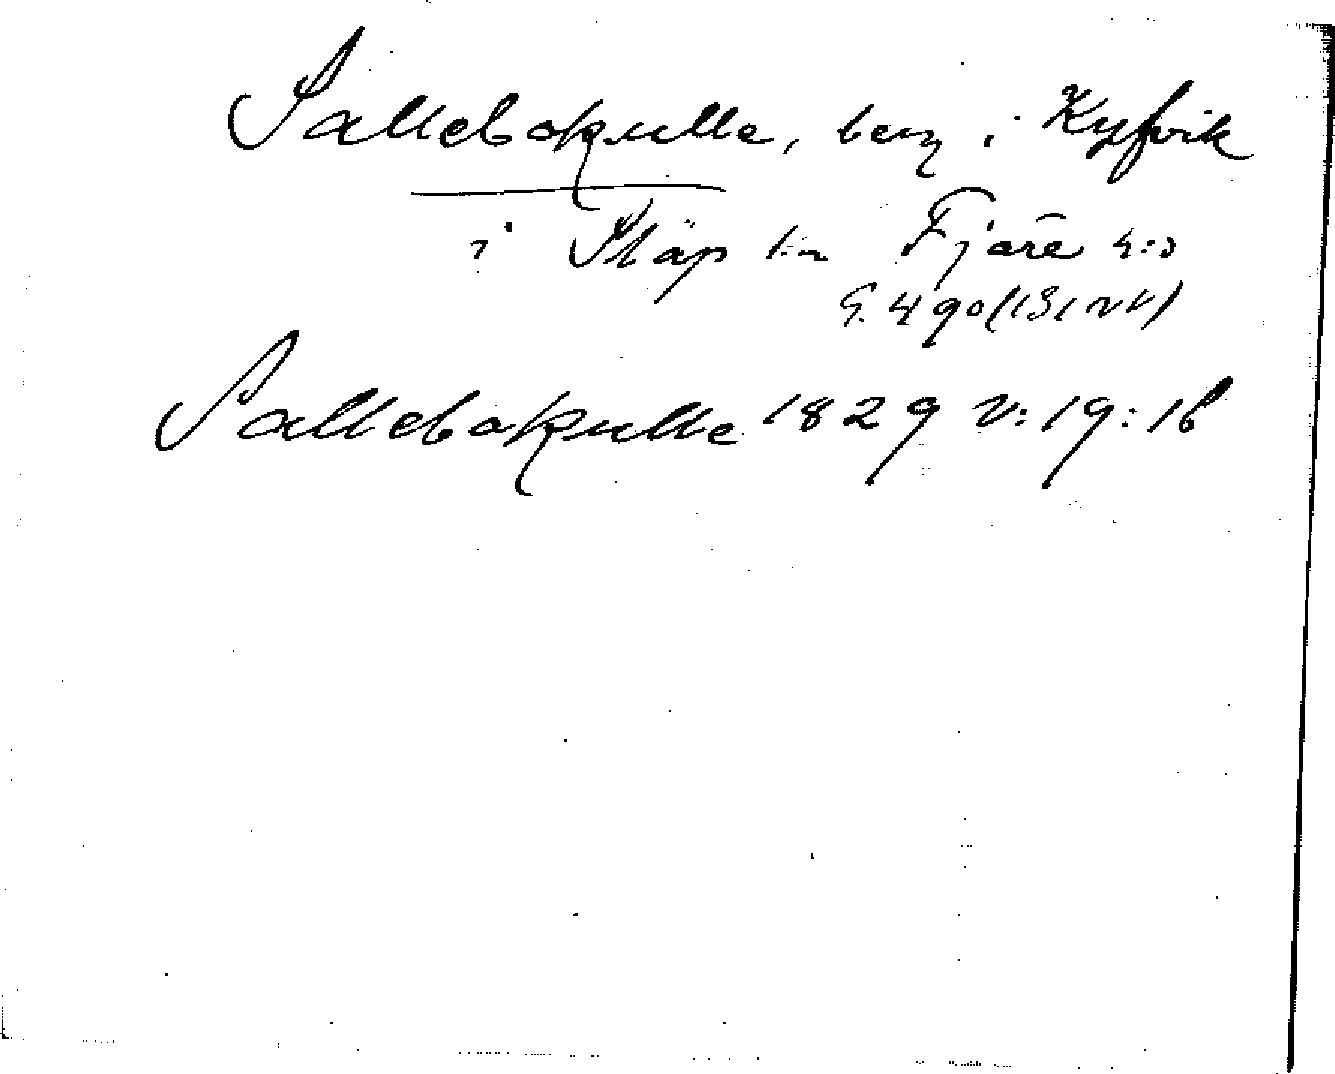 Sallebokulle, berg i Kyfvik
i Släp sn Fjäre h:d
G. 490 (131 NV)
Sallebokulle 1829 V:19:16